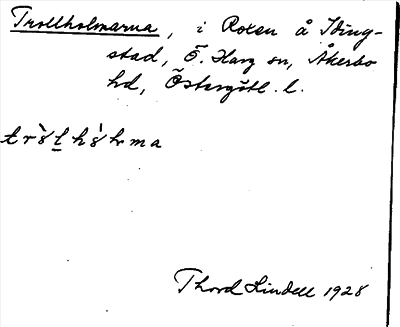 Trollholmarna, i Roxen å Iding-
stad, Ö. Harg sn, Åkerbo
hd, Östergötl. l.
Thord Lindell 1928